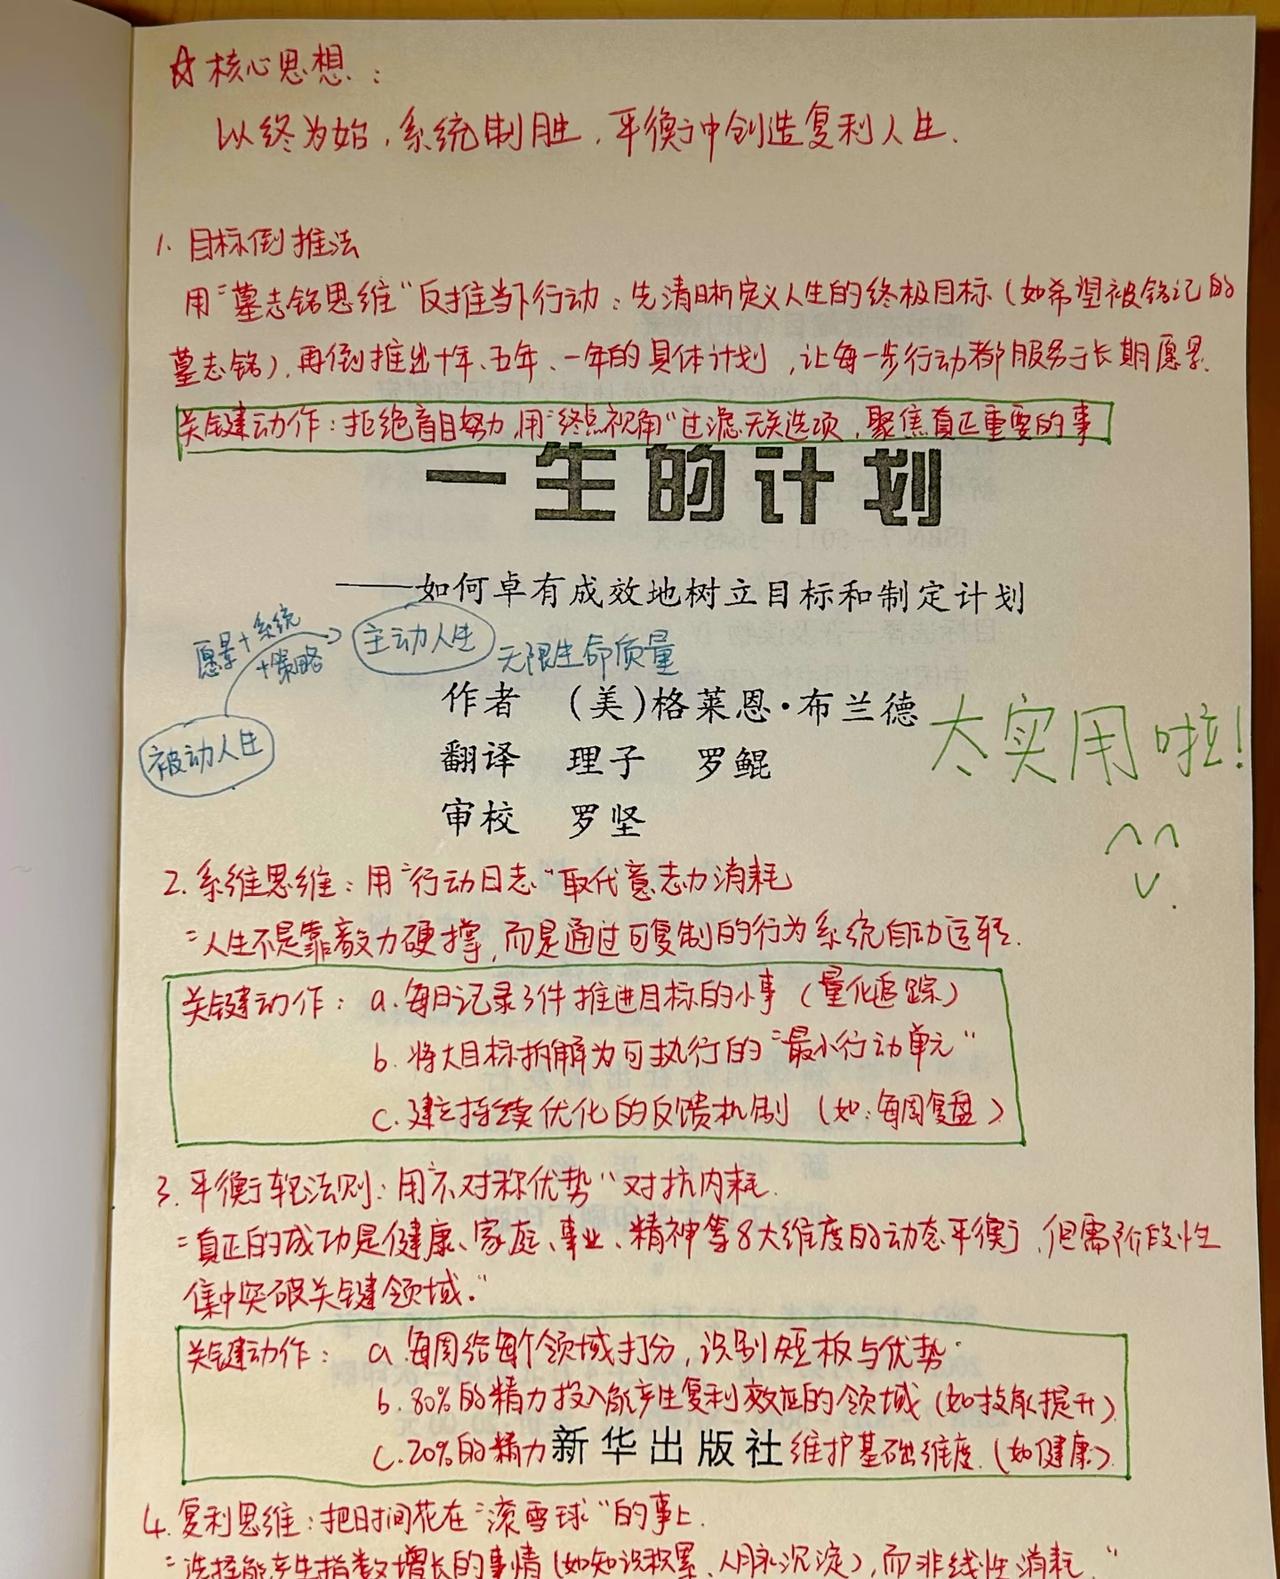 ☆核心思想：
以终为始，系统制胜，平衡中创造复利人生.
1. 目标倒推法
用"墓志铭思维"反推当下行动：先清晰定义人生的终极目标（如希望被铭记的
墓志铭），再倒推出十年、五年、一年的具体计划，让每一步行动都服务于长期愿景.
关键动作：拒绝盲目努力，用"终点视角"过滤无关选项，聚焦真正重要的事
一生的计划
——如何卓有成效地树立目标和制定计划
愿景+系统
+策略
主动人生
无限生命质量
被动人生
作者 （美）格莱恩·布兰德
翻译 理子 罗鲲
审校 罗坚
太实用啦！
2. 系维思维：用"行动日志"取代意志力消耗
"人生不是靠毅力硬撑，而是通过可复制的行为系统自动运转.
关键动作： a. 每日记录3件推进目标的小事（量化追踪）
b. 将大目标拆解为可执行的"最小行动单元"
c. 建立持续优化的反馈机制（如：每周复盘）
3. 平衡轮法则：用"不对称优势"对抗内耗.
"真正的成功是健康、家庭、事业、精神等8大维度的动态平衡，但需阶段性
集中突破关键领域."
关键动作： a. 每周给每个领域打分，识别短板与优势.
b. 80%的精力投入能产生复利效应的领域（如技能提升）
c. 20%的精力维护基础维度.（如健康）
新华出版社
4. 复利思维：把时间花在"滚雪球"的事上.
"选择能产生指数增长的事情（如知识积累、人脉沉淀），而非线性消耗."